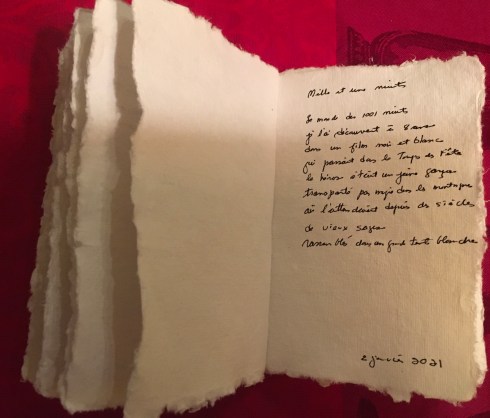 Mille et une nuits
Le monde des 1001 nuits
je l'ai découvert à 8 ans
dans un film noir et blanc
qui passait dans le Temps des Fêtes
le héros était un jeune garçon
transporté par magie dans les montagnes
où l'attendaient depuis des siècles
de vieux sages
rassemblés dans un grand tente blanche
2 janvier 2021